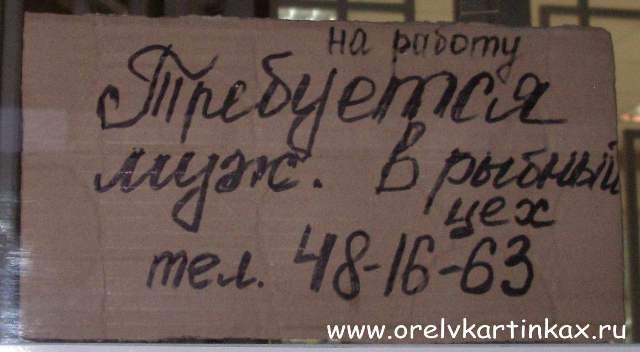 на работу
Требуется
муж. в рыбный
цех
тел. 48-16-63
www.orelvkartinkax.ru